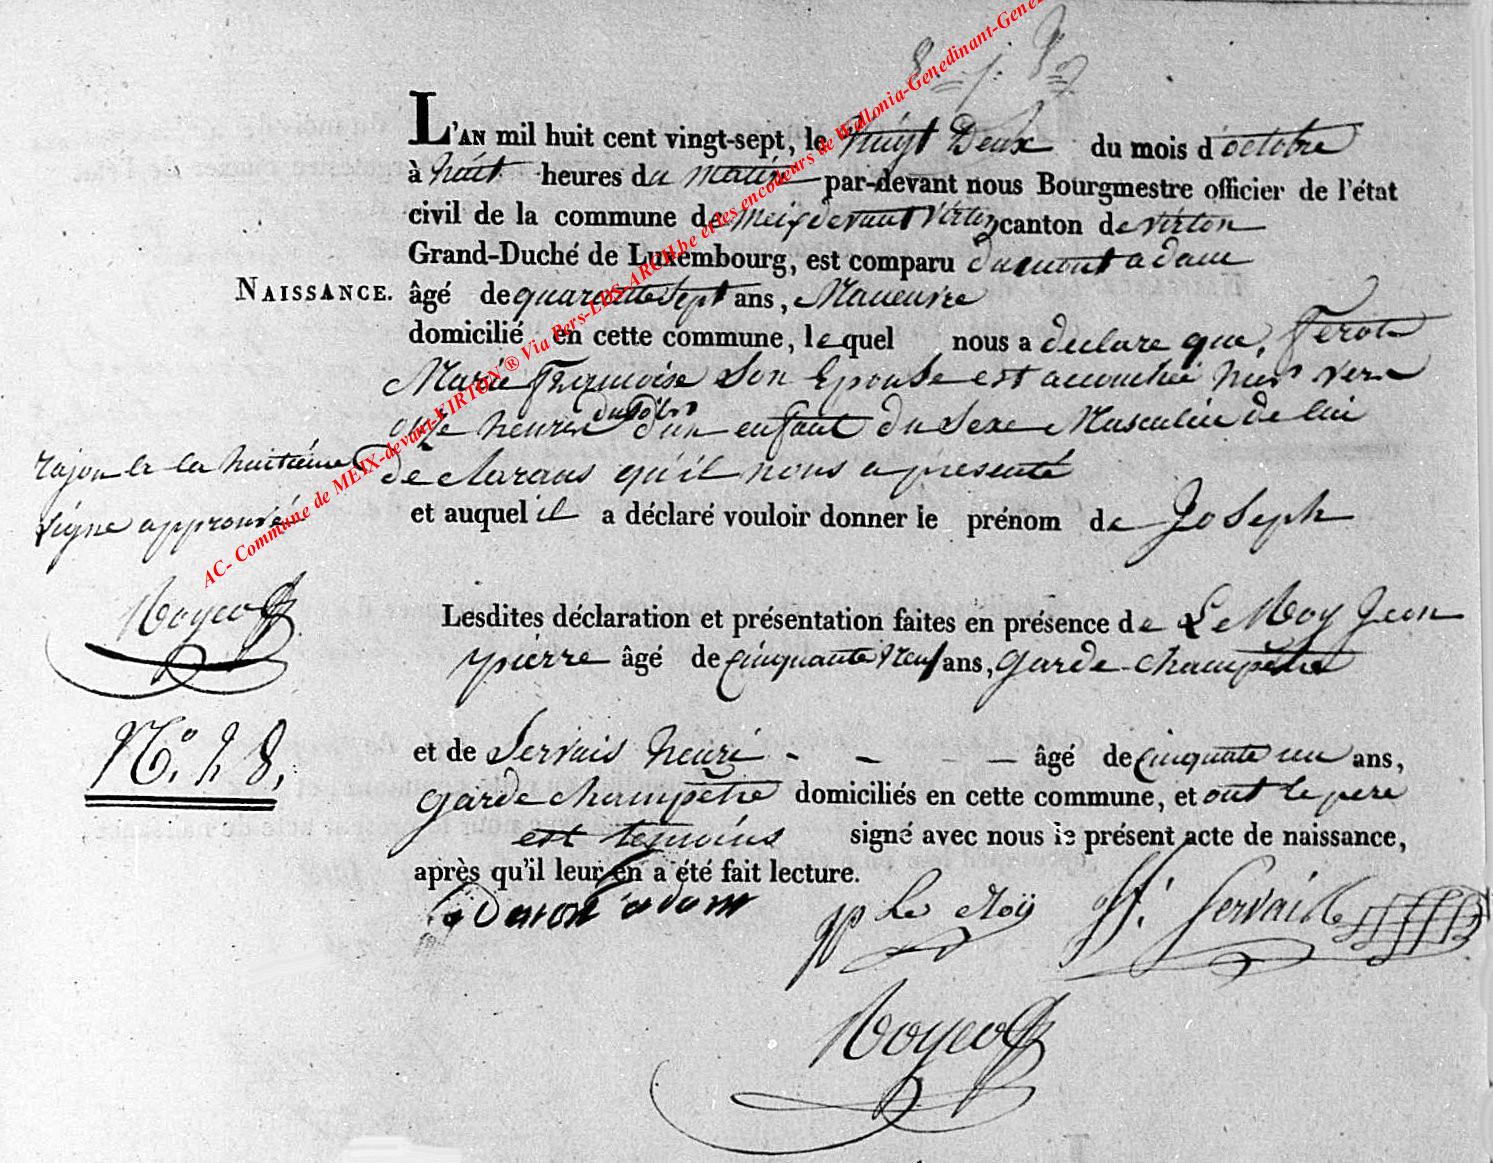 L'AN mil huit cent vingt-sept, le vingt Deux du mois d'octobre
à huit heures du matin par-devant nous Bourgmestre officier de l'état
civil de la commune de meix devant virton canton de virton
Grand-Duché de Luxembourg, est comparu dumont adam
NAISSANCE.
âgé de quarante Sept ans, Maneuvre
domicilié en cette commune, lequel nous a declare que, ferot
Marie françoise Son Epouse est accouchée hier vers
onze heures du Soir d'un enfant du Sexe Masculin de lui
declarans qu'il nous a presenté
et auquel il a déclaré vouloir donner le prénom de Joseph
rajou la huitieme
ligne approuvée
Lesdites déclaration et présentation faites en présence de Le Roy Jean
pierre âgé de cinquante Neuf ans, garde champêtre
N° 28.
et de Servais henri - - - - âgé de cinquante un ans,
garde champêtre domiciliés en cette commune, et ont le pere
est temoins signé avec nous le présent acte de naissance,
après qu'il leur en a été fait lecture.
adam
jp Le Roÿ
H. Servais
AC- Commune de MEIX-devant-VIRTON ® Via Pers-LDS-ARCH.be et les encodeurs de Wallonia-Genedinant-Gene